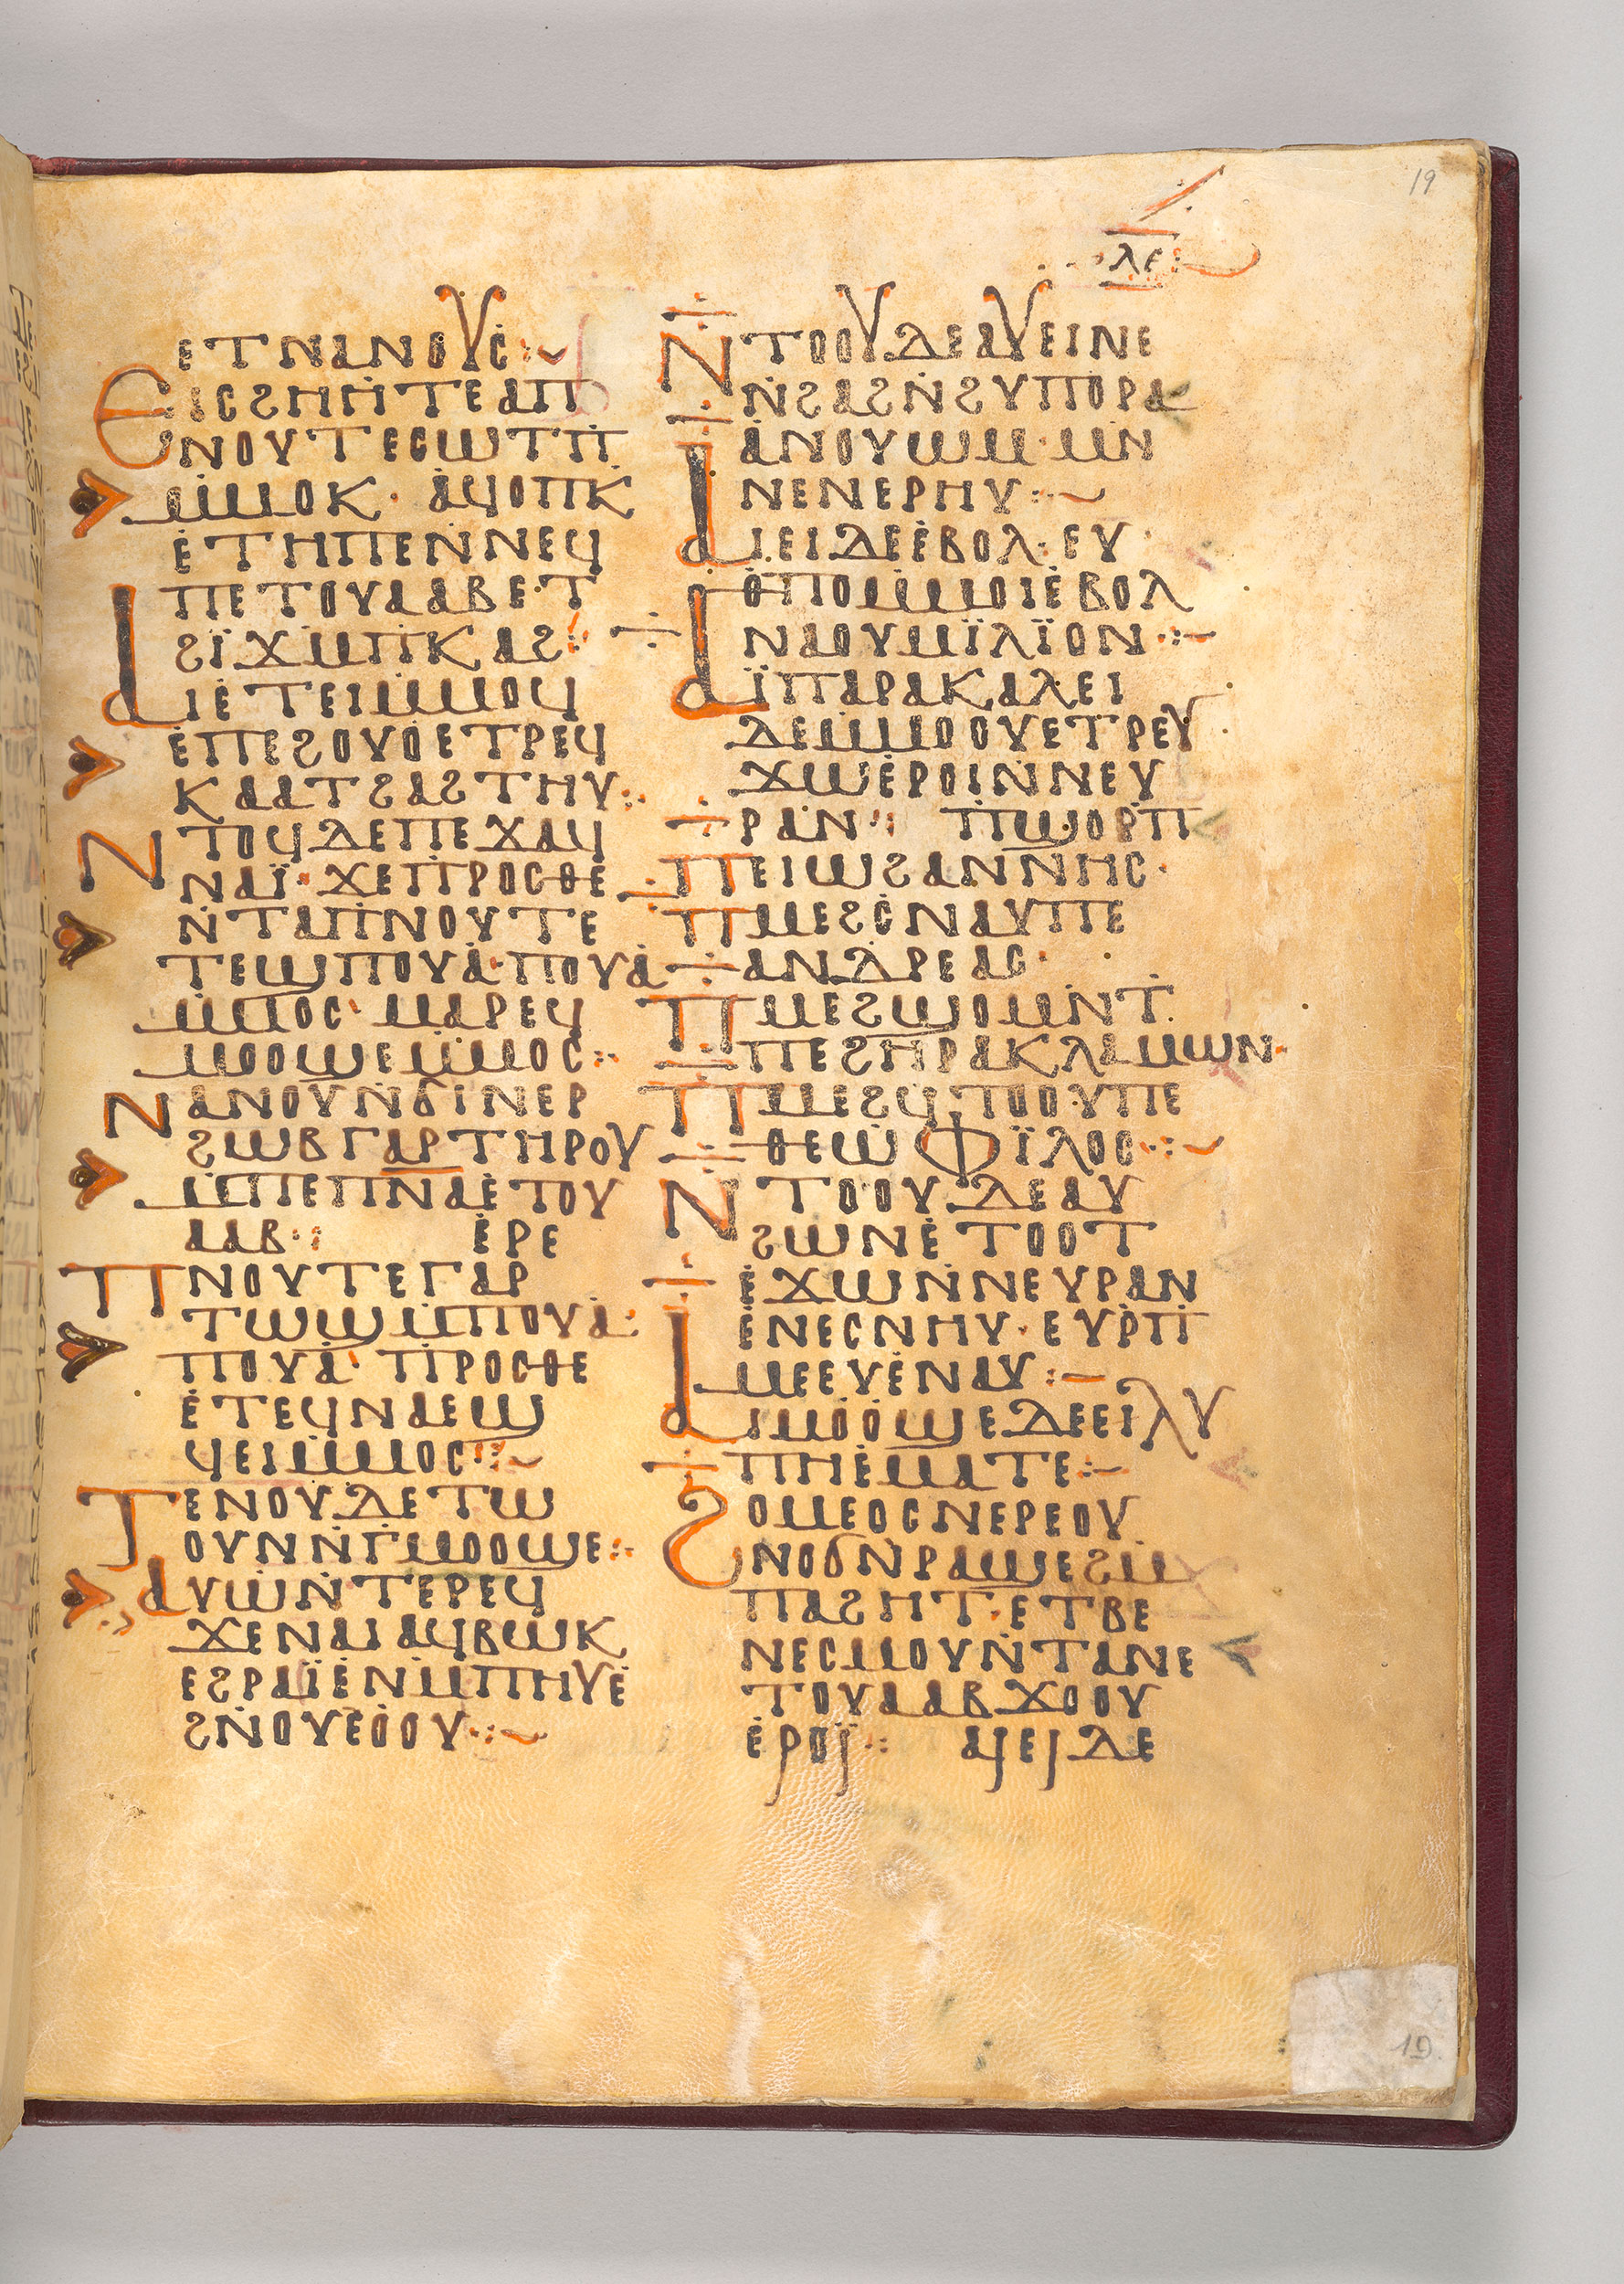 19
ⲗⲉ
ⲉⲧⲛⲁⲛⲟⲩⲥ:~
Ⲉⲓⲥϩⲏⲏⲧⲉⲁⲡ
ⲛⲟⲩⲧⲉⲥⲱⲧⲡ̇
ⲙ̇ⲙⲟⲕ· ⲁ̇ϥⲟⲡⲕ
ⲉ̇ⲧⲏⲡⲉⲛ̇ⲛⲉϥ
ⲡⲉⲧⲟⲩⲁⲁⲃⲉ·ⲧ
ϩⲓ̈ϫⲙ̇ⲡ̇ⲕⲁϩ:
Ⲁⲓⲉ̇ⲧⲉⲓⲙ̇ⲙⲟϥ
ⲉ̇ⲡⲉϩⲟⲩⲟ̇ⲉⲧⲣⲉϥ
ⲕⲁⲁⲧϩⲁϩⲧⲏⲩ:.
Ⲛⲧⲟϥⲇⲉⲡⲉϫⲁϥ
ⲛⲁⲓ̈·ϫⲉⲡ̇ⲣⲟⲥⲑⲉ
ⲛ̇ⲧⲁⲡ̇ⲛⲟⲩⲧⲉ
ⲧⲉϣⲡⲟⲩⲁ̇·ⲡⲟⲩⲁ̇
ⲙ̇ⲙⲟⲥ· ⲙⲁⲣⲉϥ
ⲙⲟⲟϣⲉⲙ̇ⲙⲟⲥ:.
Ⲛⲁⲛⲟⲩⲛ̇ϭⲓⲛⲉⲣ
ϩⲱⲃⲅⲁⲣⲧⲏⲣⲟⲩ
ⲙ̇ⲡⲉⲡⲛⲁⲉ̇ⲧⲟⲩ
ⲁⲁⲃ·: ⲉ̇ⲣⲉ
Ⲡⲛⲟⲩⲧⲉⲅⲁⲣ
ⲧⲱϣⲙ̇ⲡⲟⲩⲁ̇·
ⲡⲟⲩⲁ̇· ⲡ̇ⲣⲟⲥⲑⲉ
ⲉ̇ⲧⲉϥⲛⲁⲉϣ
ϥⲉⲓⲙ̇ⲙⲟⲥ:~
Ⲧⲉⲛⲟⲩⲇⲉⲧⲱ
ⲟⲩⲛⲛ̇ⲅ̇ⲙⲟⲟϣⲉ:.
Ⲁⲩⲱⲛ̇ⲧⲉⲣⲉϥ
ϫⲉⲛⲁⲓⲁϥⲃⲱⲕ
ⲉϩⲣⲁⲓ̈ⲉ̇ⲛⲙ̇ⲡⲏⲩⲉ̇
ϩⲛ̇ⲟⲩⲉ̇ⲟⲟⲩ·:~
Ⲛⲧⲟⲟⲩⲇⲉⲁⲩⲉⲓⲛⲉ
ⲛ̇ϩⲁϩⲛ̇ϩⲩⲡⲟⲣⲁ
ⲁⲛⲟⲩⲱⲙ·ⲙⲛ
ⲛⲉⲛⲉⲣⲏⲩ:~
Ⲁⲓⲉⲓⲇⲉⲉ̇ⲃⲟⲗ·ⲉⲩ
ⲑⲡⲟⲙ̇ⲙⲟⲓⲉ̇ⲃⲟⲗ
ⲛⲁⲟⲩⲙⲓ̈ⲗⲓ̈ⲟⲛ·:-
Ⲁⲓ̈ⲡⲁⲣⲁⲕⲁⲗⲉⲓ
ⲇⲉⲙ̇ⲙⲟⲟⲩⲉⲧⲣⲉⲩ
ϫⲱⲉ̇ⲣⲟⲓⲛ̇ⲛⲉⲩ
ⲣⲁⲛ·: ⲡ̇ϣⲟⲣⲡ
ⲡⲉⲓⲱϩⲁⲛⲛⲏⲥ·
ⲡⲙⲉϩⲥ̇ⲛⲁⲩⲡⲉ
ⲁⲛⲇⲣⲉⲁⲥ·
ⲡⲙⲉϩϣⲟⲙⲛ̇ⲧ̇
ⲡⲉϩⲏⲣⲁⲕⲗⲁⲙⲱⲛ·
ⲡⲙⲉϩϥ̇ⲧⲟⲟⲩⲡⲉ
ⲑⲉⲱⲫⲓ̈ⲗⲟⲥ·:~
Ⲛⲧⲟⲟⲩⲇⲉⲁⲩ
ϩⲱⲛⲉ̇ⲧⲟⲟⲧ
ⲉ̇ϫⲱⲛ̇ⲛⲉⲩⲣⲁⲛ
ⲉ̇ⲛⲉⲥⲛⲏⲩ·ⲉⲩⲣ̇ⲡ
ⲙⲉⲉⲩⲉ̇ⲛⲁⲩ:-
Ⲁⲓⲙⲟ̇ⲟϣⲉⲇⲉⲉⲓⲗⲩ
ⲡⲏⲉ̇ⲙⲁⲧⲉ:-
Ϩⲟⲙⲉⲟⲥⲛⲉⲣⲉⲟⲩ
ⲛⲟϭⲛ̇ⲣⲁϣⲉϩⲙ̇
ⲡⲁϩⲏⲧ·ⲉⲧⲃⲉ
ⲛⲉⲥⲙⲟⲩⲛ̇ⲧⲁⲛⲉ
ⲧⲟⲩⲁⲁⲃϫⲟⲟⲩ
ⲉ̇ⲣⲟⲓ̈·: ⲁⲓⲉⲓⲇⲉ
19